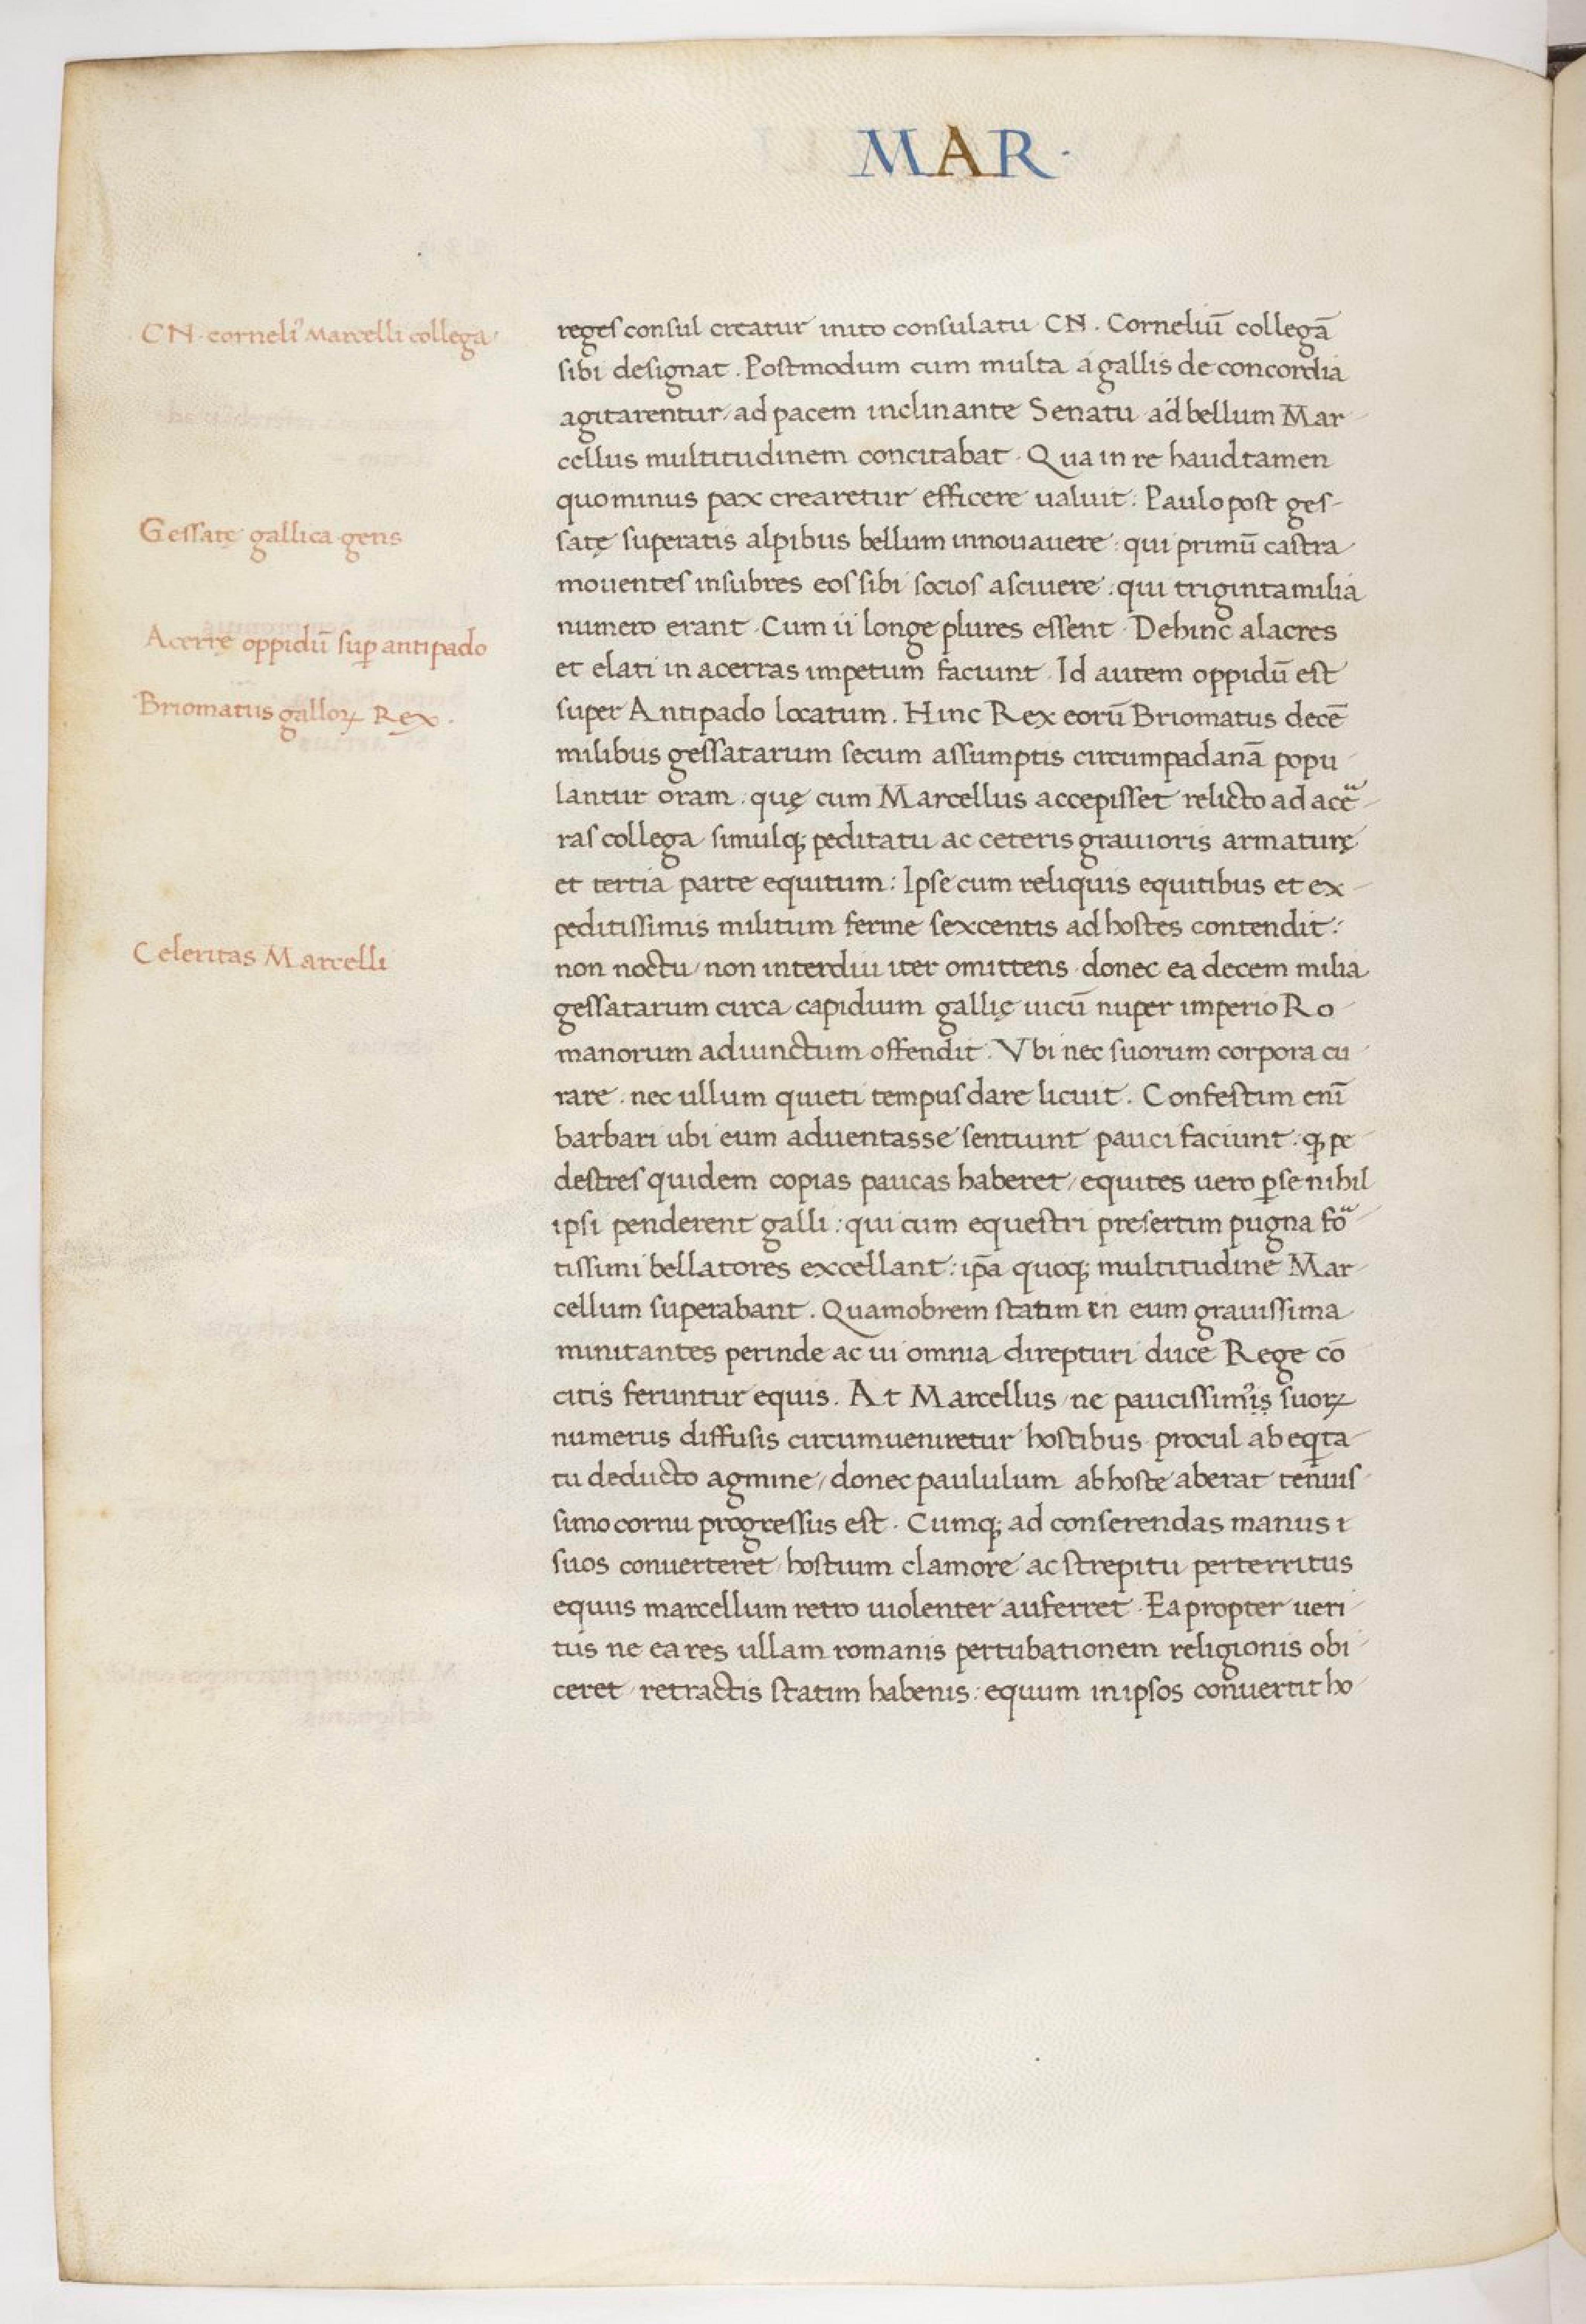 MAR·
CN · corneliꝰ Marcelli collega ·
reges consul creatur inito consulatu CN . Corneliū collegā
sibi designat . Postmodum cum multa á gallis de concordia
agitarentur / ad pacem inclinante Senatu ad bellum Mar
cellus multitudinem concitabat · Qua in re haud tamen
quominus pax crearetur efficere ualuit : Paulo post ges-
Gessatę gallica gens
satę superatis alpibus bellum innouauere : qui primū castra
mouentes insubres eos sibi socios asciuere : qui triginta milia
numero erant · Cum ii longe plures essent · Dehinc alacres
Acerrę oppidū suꝑ antipado
et elati in acerras impetum faciunt · Id autem oppidū est
Briomatus galloꝝ Rex .
super Antipado locatum . Hinc Rex eorū Briomatus decē
milibus gessatarum secum assumptis circumpadanā popu
lantur oram : quę cum Marcellus accepisset relicto ad acē
ras collega simulqꝫ peditatu ac ceteris grauioris armaturę
et tertia parte equitum : Ipse cum reliquis equitibus et ex-
peditissimis militum ferme sexcentis ad hostes contendit :
Celeritas Marcelli
non noctu / non interdiu iter omittens · donec ea decem milia
gessatarum circa capiduum gallię uicū nuper imperio Ro
manorum adiunctum offendit . Vbi nec suorum corpora cu
rare . nec ullum quieti tempus dare licuit . Confestim enī
barbari ubi eum aduentasse sentiunt pauci faciunt : qꝫ pe
destres quidem copias paucas haberet / equites uero ꝑ se nihil
ipsi penderent galli : qui cum equestri presertim pugna fō
tissimi bellatores excellant : ip̄a quoqꝫ multitudine Mar
cellum superabant . Quamobrem statim in eum grauissima
minitantes perinde ac ui omnia direpturi duce Rege cō
citis feruntur equis . At Marcellus / ne paucissimꝰis suoꝝ
numerus diffusis circumueniretur hostibus procul ab eqita
tu deducto agmine / donec paululum ab hoste aberat tenuis
simo cornu progressus est · Cumqꝫ ad conserendas manus i
suos conuerteret hostium clamore ac strepitu perterritus
equus marcellum retro uiolenter auferret · Ea propter ueri
tus ne ea res ullam romanis pertubationem religionis obi
ceret / retractis statim habenis : equum in ipsos conuertit ho